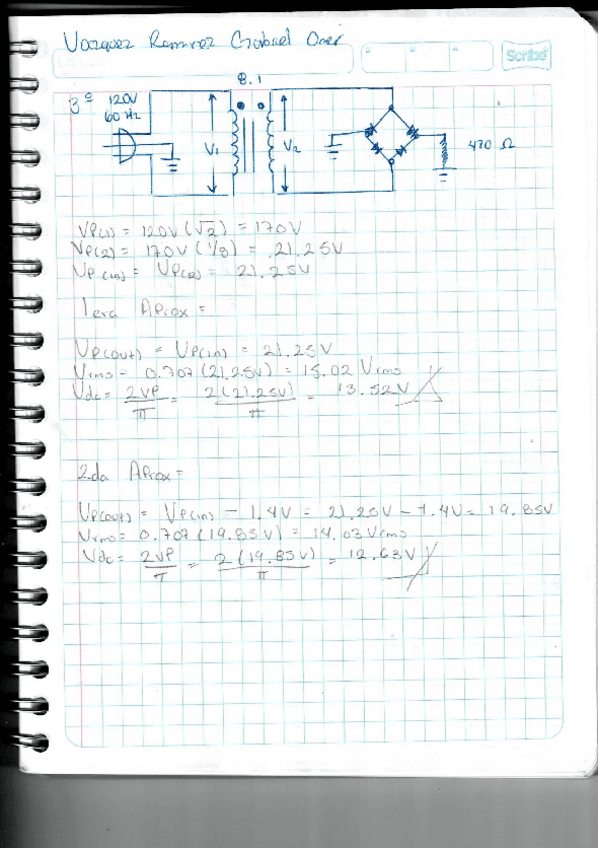 Vazquez Ramirez Gabriel Omar
Scribe
8:1
3º 120V
60 Hz
V1
V2
470 Ω
VP(1) = 120V (√2) = 170V
VP(2) = 170V (1/8) = 21.25V
VP(in) = VP(2) = 21.25V
1era Aprox =
VP(out) = VP(in) = 21.25V
Vrms = 0.707 (21.25V) = 15.02 Vrms
Vdc = 2VP/π = 2(21.25V)/π = 13.52V
2da Aprox =
VP(out) = VP(in) - 1.4V = 21.25V - 1.4V = 19.85V
Vrms = 0.707 (19.85V) = 14.03 Vrms
Vdc = 2VP/π = 2(19.85V)/π = 12.63V